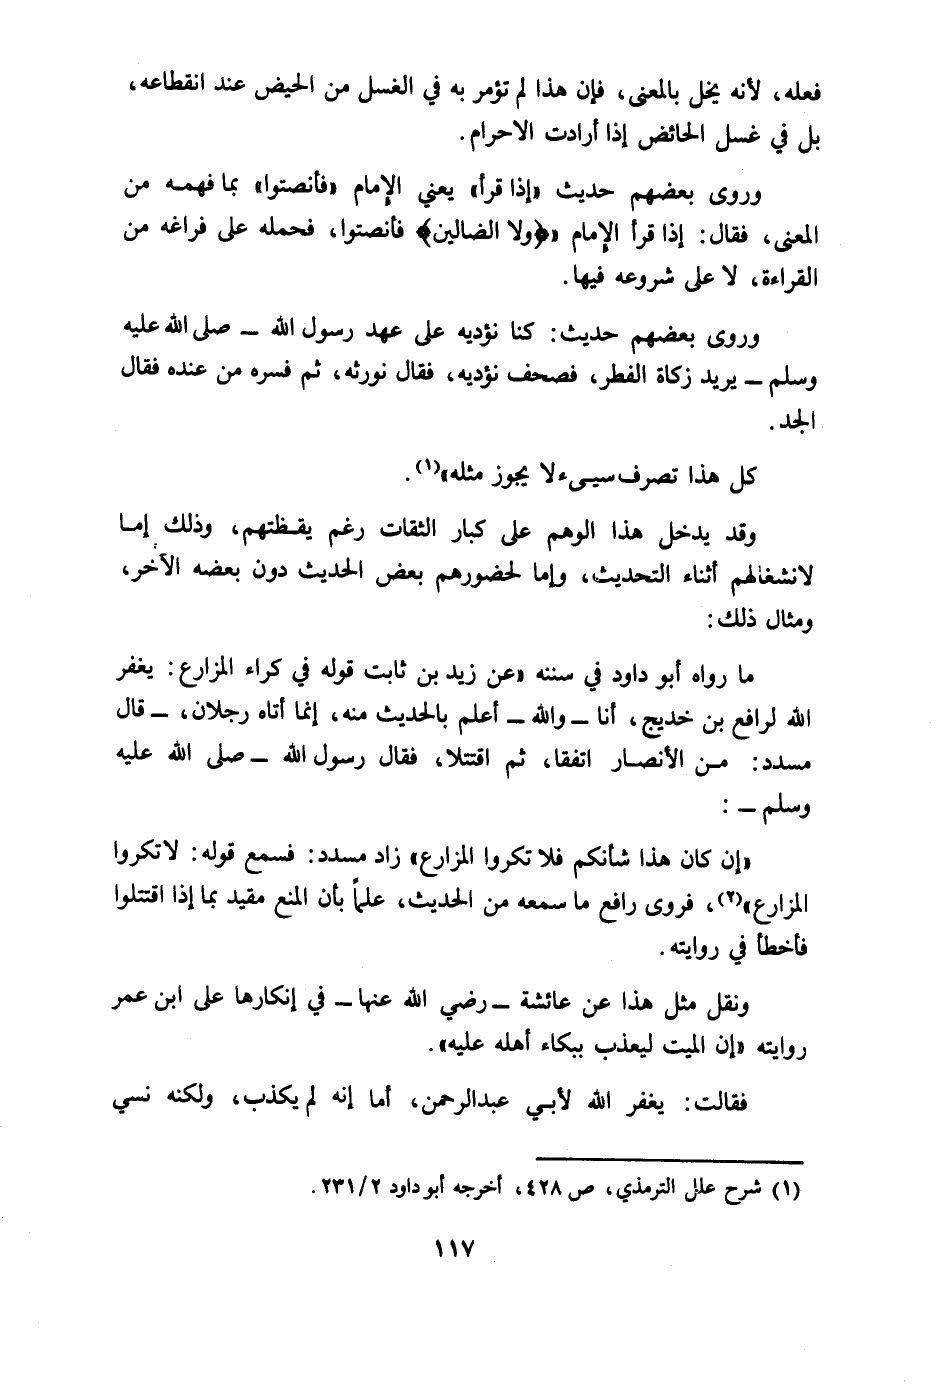 فعله، لأنه يخل بالمعنى، فإن هذا لم تؤمر به في الغسل من الحيض عند انقطاعه،
بل في غسل الحائض إذا أرادت الاحرام.
وروى بعضهم حديث «إذا قرأ» يعني الإمام «فأنصتوا» بما فهمه من
المعنى، فقال: إذا قرأ الإمام «﴿ولا الضالين﴾ فأنصتوا، فحمله على فراغه من
القراءة، لا على شروعه فيها.
وروى بعضهم حديث: كنا نؤديه على عهد رسول الله ــ صلى الله عليه
وسلم ــ يريد زكاة الفطر، فصحف نؤديه، فقال نورثه، ثم فسره من عنده فقال
الجد.
كل هذا تصرف سيىء لا يجوز مثله»(١).
وقد يدخل هذا الوهم على كبار الثقات رغم يقظتهم، وذلك إما
لانشغالهم أثناء التحديث، وإما لحضورهم بعض الحديث دون بعضه الآخر،
ومثال ذلك:
ما رواه أبو داود في سننه «عن زيد بن ثابت قوله في كراء المزارع: يغفر
الله لرافع بن خديج، أنا ــ والله ــ أعلم بالحديث منه، إنما أتاه رجلان، ــ قال
مسدد: من الأنصار اتفقا، ثم اقتتلا، فقال رسول الله ــ صلى الله عليه
وسلم ــ :
«إن كان هذا شأنكم فلا تكروا المزارع» زاد مسدد: فسمع قوله: لا تكروا
المزارع»(٢)، فروى رافع ما سمعه من الحديث، علماً بأن المنع مقيد بما إذا اقتتلوا
فأخطأ في روايته.
ونقل مثل هذا عن عائشة ــ رضي الله عنها ــ في إنكارها على ابن عمر
روايته «إن الميت ليعذب ببكاء أهله عليه».
فقالت: يغفر الله لأبي عبدالرحمن، أما إنه لم يكذب، ولكنه نسي
(١) شرح علل الترمذي، ص ٤٢٨، أخرجه أبو داود ٢٣١/٢.
١١٧